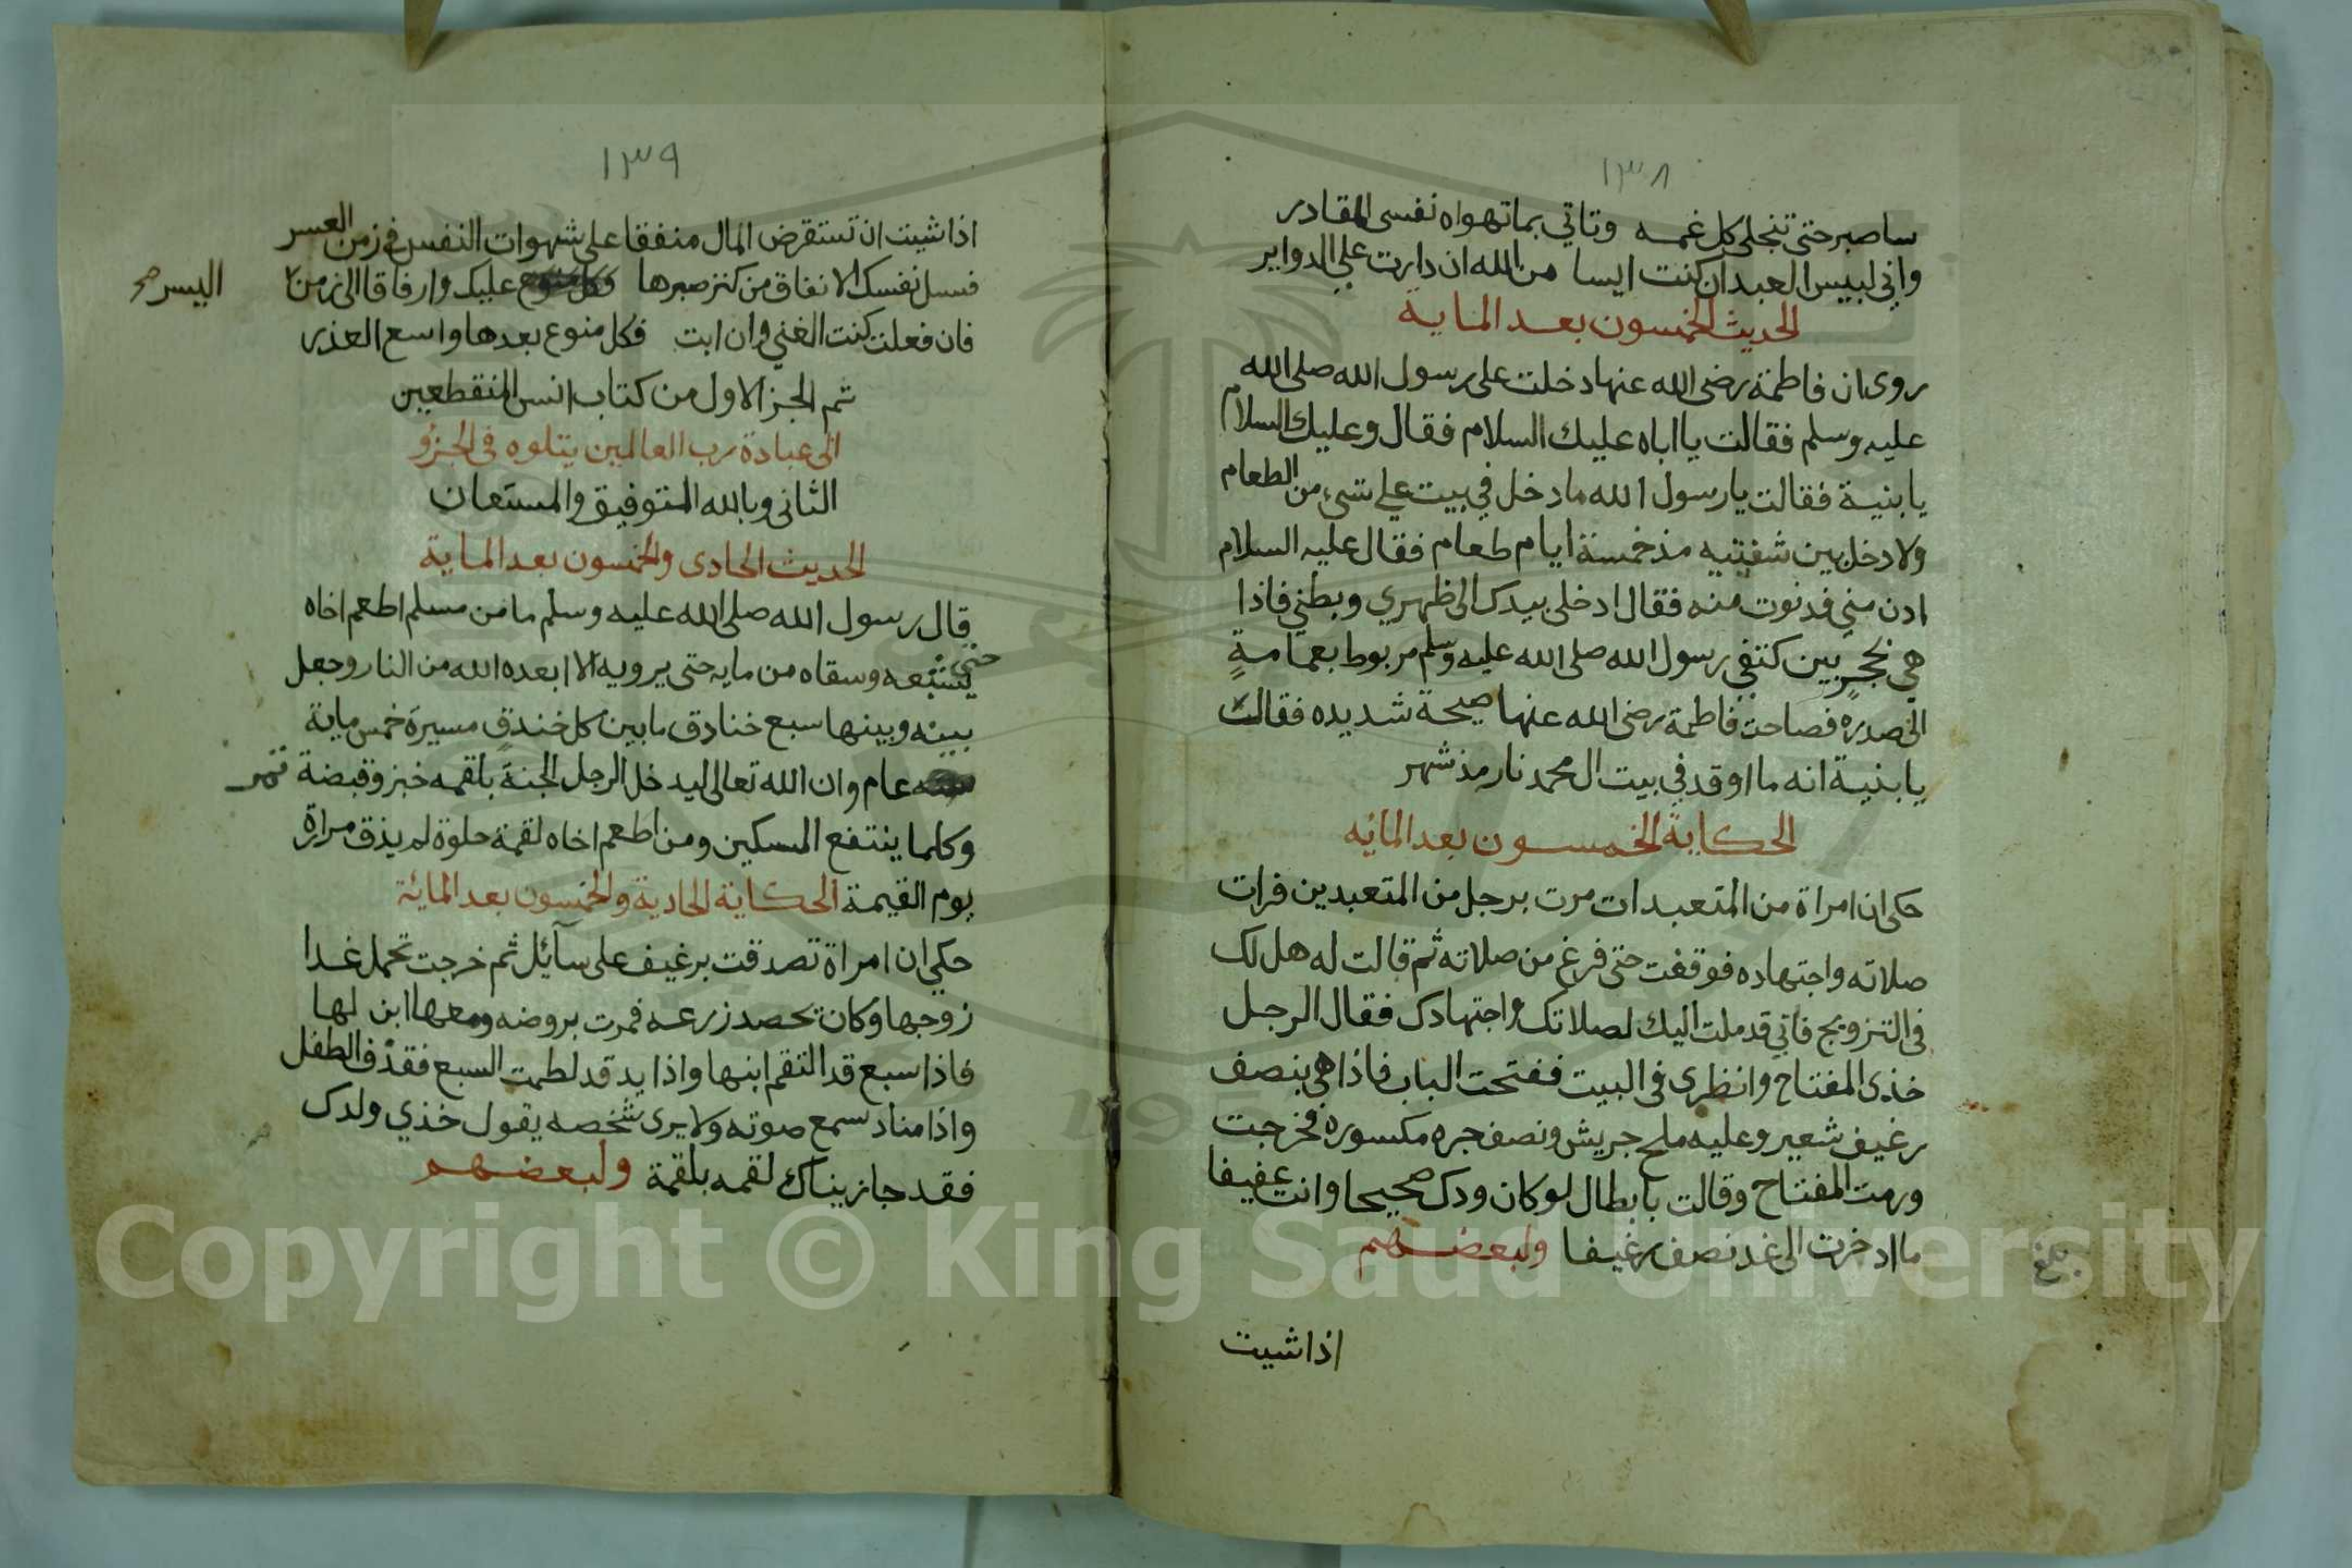 ١٣٨
ساصبر حتى تنجلي كل غمه وتاتي بما تهواه نفسي المقادر
واني لبيس العبد ان كنت ايسا من الله ان دارت علي الدواير
الحديث الخمسون بعد الماية
روى ان فاطمة رضى الله عنها دخلت على رسول الله صلى الله
عليه وسلم فقالت يا اباه عليك السلام فقال وعليك السلام
يا بنية فقالت يا رسول الله ما دخل في بيت علي شيء من الطعام
ولا دخل بين شفتيه مذ خمسة ايام طعام فقال عليه السلام
ادن مني فدنوت منه فقال ادخلي بيدك الى ظهري وبطني فاذا
هي بحجر بين كتفي رسول الله صلى الله عليه وسلم مربوط بعمامة
الى صدره فصاحت فاطمة رضى الله عنها صيحة شديده فقالت
يا بنية انه ما اوقد في بيت ال محمد نار مذ شهر
الحكاية الخمسون بعد المائه
حكى ان امراة من المتعبدات مرت برجل من المتعبدين فرات
صلاته واجتهاده فوقفت حتى فرغ من صلاته ثم قالت له هل لك
فى التزويج فاني قد ملت اليك لصلاتك واجتهادك فقال الرجل
خذى المفتاح وانظرى فى البيت ففتحت الباب فاذا هي بنصف
رغيف شعير وعليه ملح جريش ونصف جره مكسوره فخرجت
ورمت المفتاح وقالت يا بطال لو كان ودك صحيحا وانت عفيفا
ما ادخرت الى غد نصف رغيفا ولبعضهم
بلغ
اذا شيت
١٣٩
اذا شيت ان تستقرض المال منفقا على شهوات النفس في زمن العسر
فسل نفسك الانفاق من كنز صبرها عليك وارفاقا الى زمن
اليسر صح
فان فعلت كنت الغني وان ابت فكل منوع بعدها واسع العذر
تم الجز الاول من كتاب انس المنقطعين
الى عبادة رب العالمين يتلوه فى الجزو
الثانى وبالله التوفيق والمستعان
الحديث الحادى والخمسون بعد الماية
قال رسول الله صلى الله عليه وسلم ما من مسلم اطعم اخاه
حتى يشبعه وسقاه من مايه حتى يرويه الا ابعده الله من النار وجعل
بينه وبينها سبع خنادق ما بين كل خندق مسيرة خمس ماية
عام وان الله تعالى ليدخل الرجل الجنة بلقمه خبز وقبضة تمر
وكلما ينتفع المسكين ومن اطعم اخاه لقمة حلوة لم يذق مرارة
يوم القيمة الحكاية الحادية والخمسون بعد المائة
حكي ان امراة تصدقت برغيف على سآئل ثم خرجت تحمل غدا
زوجها وكان يحصد زرعه فمرت بروضه ومعها ابن لها
فاذا سبع قد التقم ابنها واذا يد قد لطمت السبع فقذف الطفل
واذا مناد سمع صوته ولا يرى شخصه يقول خذي ولدك
فقد جازيناك لقمه بلقمة ولبعضهم
Copyright © King Saud University